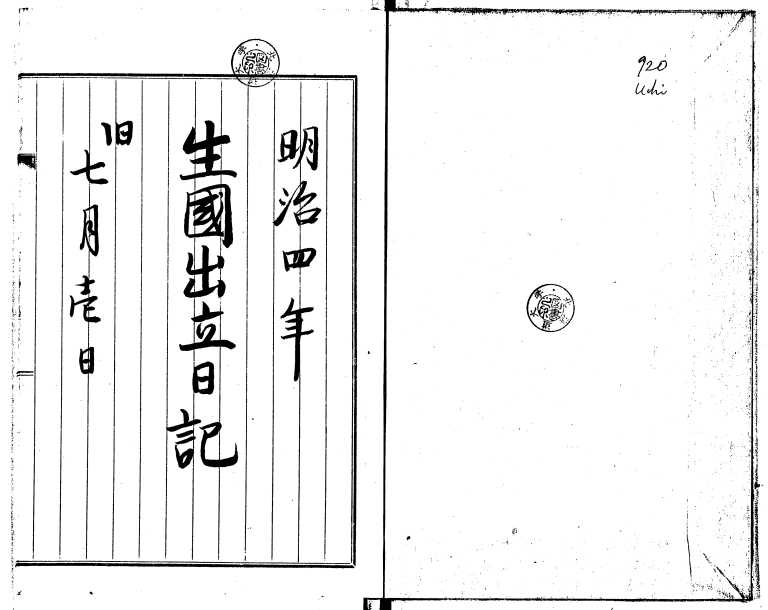 920
Uchi
明治四年
生國出立日記
旧
七月壱日